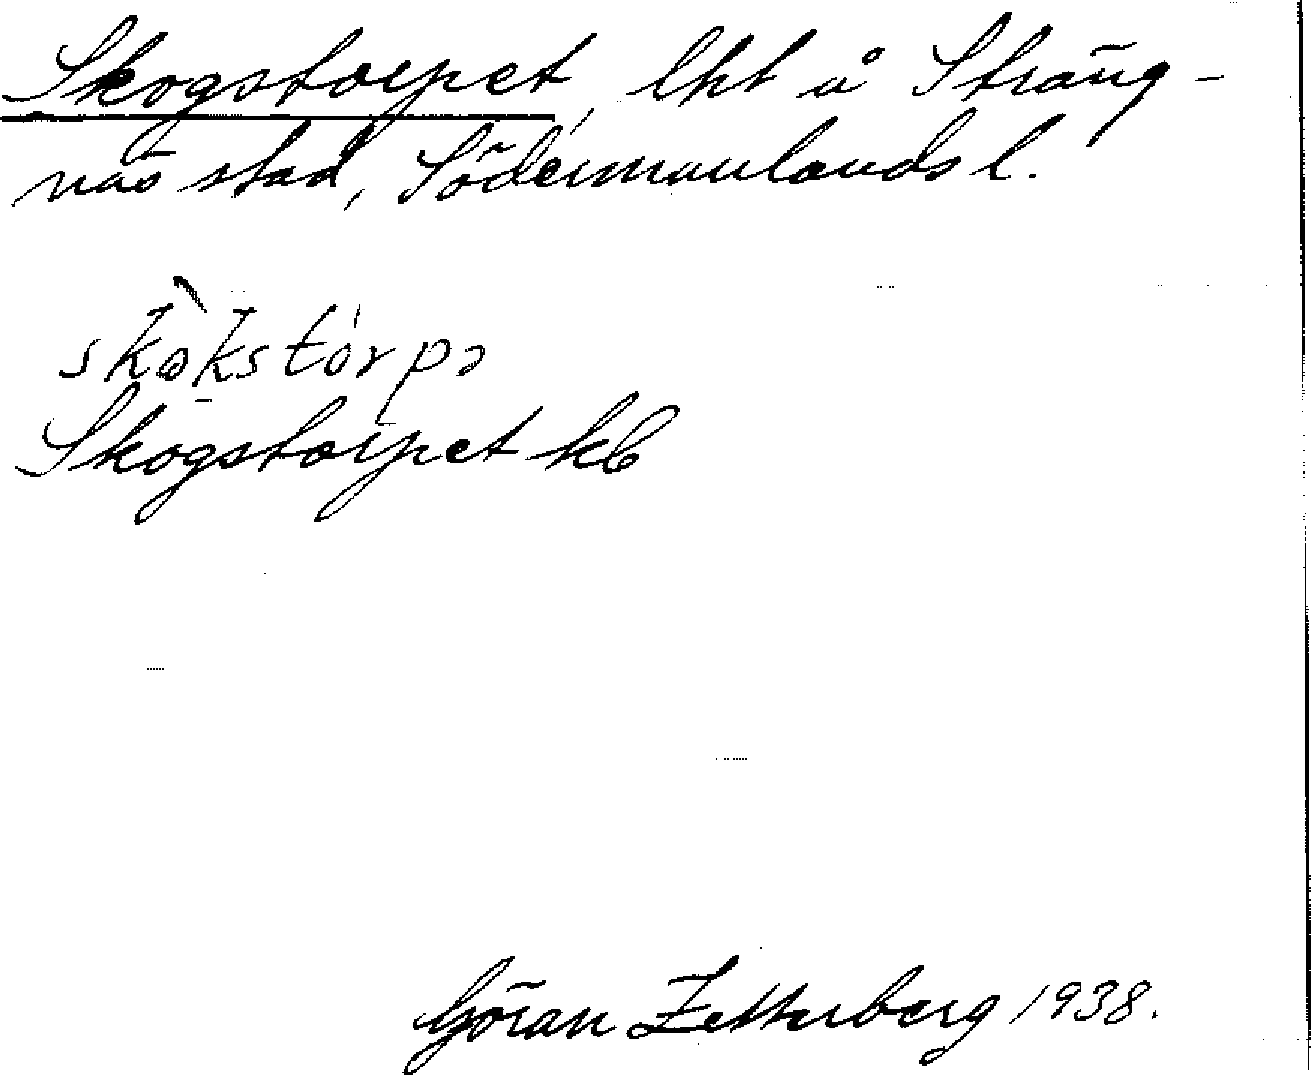 Skogstorpet, lht å Sträng-
näs stad, Södermanlands l.
skòkstórpə
Skogstorpet kb
Göran Zetterberg 1938.